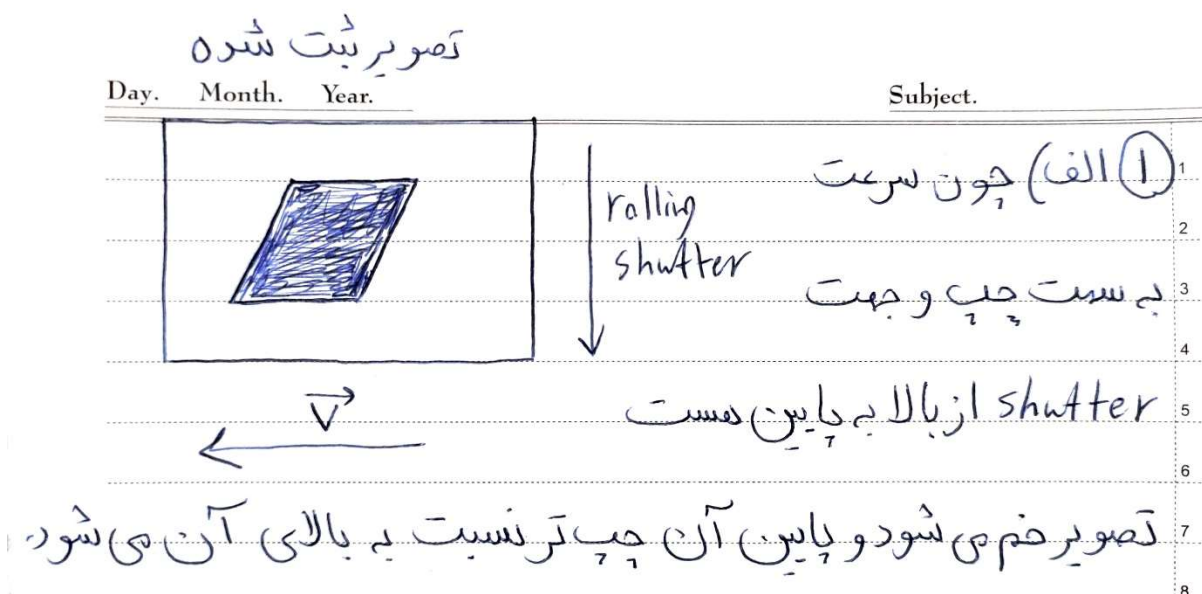 تصویر ثبت شده
Day. Month. Year. Subject.
① الف) چون سرعت
rolling
shutter
به سمت چپ و جهت
shutter از بالا به پایین هست
V
تصویر خم می شود و پایین آن چپ تر نسبت به بالای آن می شود.
1
2
3
4
5
6
7
8